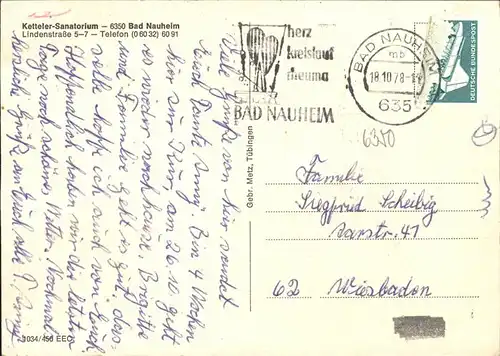 Ketteler-Sanatorium – 6350 Bad Nauheim
Lindenstraße 5–7 – Telefon (0 60 32) 60 91
herz
kreislauf
rheuma
BAD NAUHEIM
BAD NAUHEIM
mb
18.10.78
635
DEUTSCHE BUNDESPOST
6350
Viele Grüße von hier sendet
Euch Tante Anny. Bin 4 Wochen
hier zur Kur, am 26.10 geht
es wieder nach Hause. Brigitte
und Familie geht es gut, das
selbe hoffe ich auch von Euch.
Hoffendlich haben wir die letzten
Tage noch schönes Wetter. Nochmal
herzliche Grüße an Euch alle T. Anny
Gebr. Metz, Tübingen
Familie
Siegfried Scheibig
Saarstr. 41
62 Wiesbaden